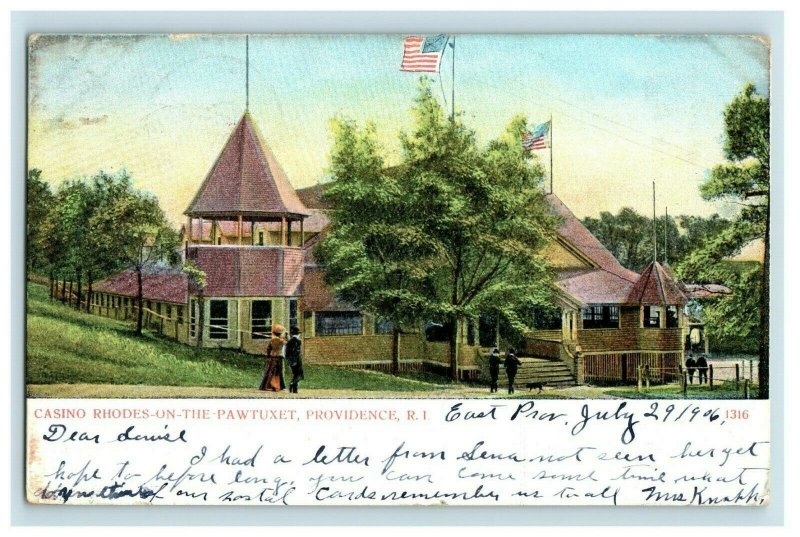 CASINO RHODES-ON-THE-PAWTUXET, PROVIDENCE, R. I. East Prov, July 29 1906, 1316
Dear Louise
I had a letter from Lena not seen her yet
hope to before long, you can come some time what
do you think of our postal Cards remember us to all Mrs Knapp,